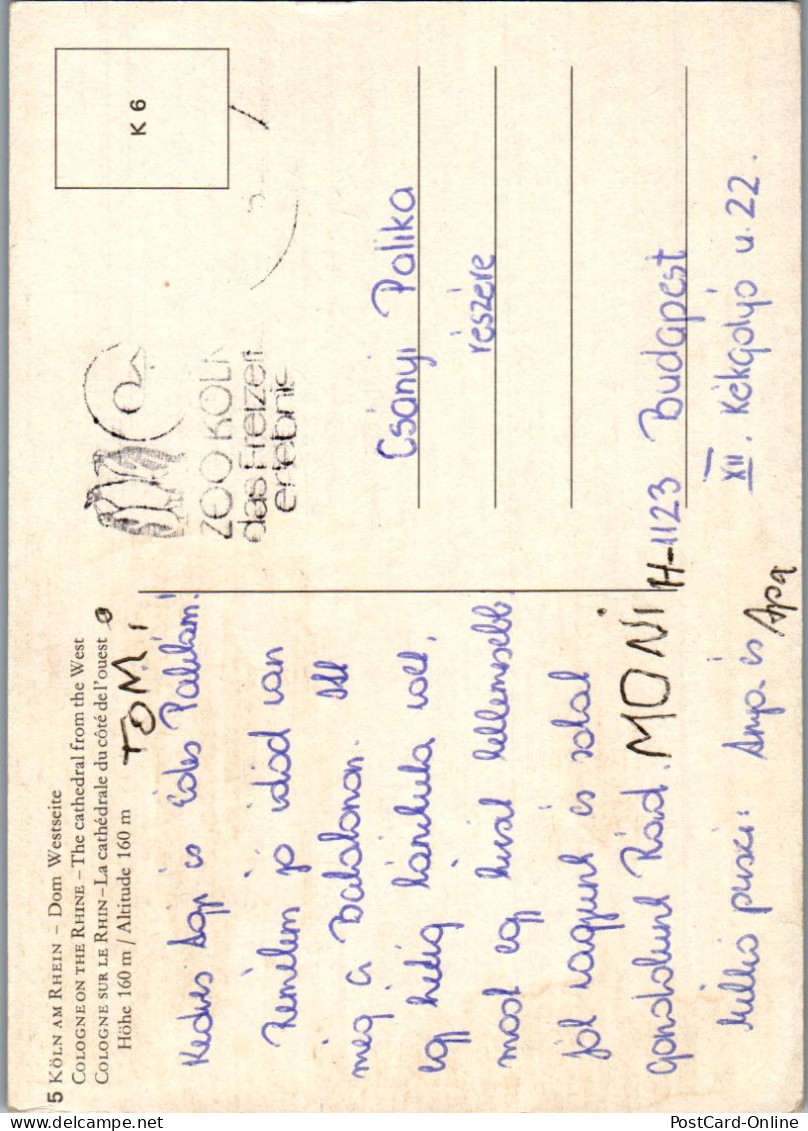 5 KÖLN AM RHEIN – Dom Westseite
COLOGNE ON THE RHINE – The cathedral from the West
COLOGNE SUR LE RHIN – La cathédrale du côté de l'ouest
Höhe 160 m / Altitude 160 m
TOMI
Kedves és Édes Palikám!
Remélem jó időd van
még a Balatonon. Itt
egy hétig kánikula volt,
most egy kicsit kellemesebb,
jól vagyunk és sokat
gondolunk Rád.
MONI
Millió puszi: Anya és
Apa
K 6
ZOO KÖLN
das Freizeit
erlebnis
Csányi Palika
részére
H-1123 Budapest
XII. Kékgolyó u. 22.
PostCard-Online